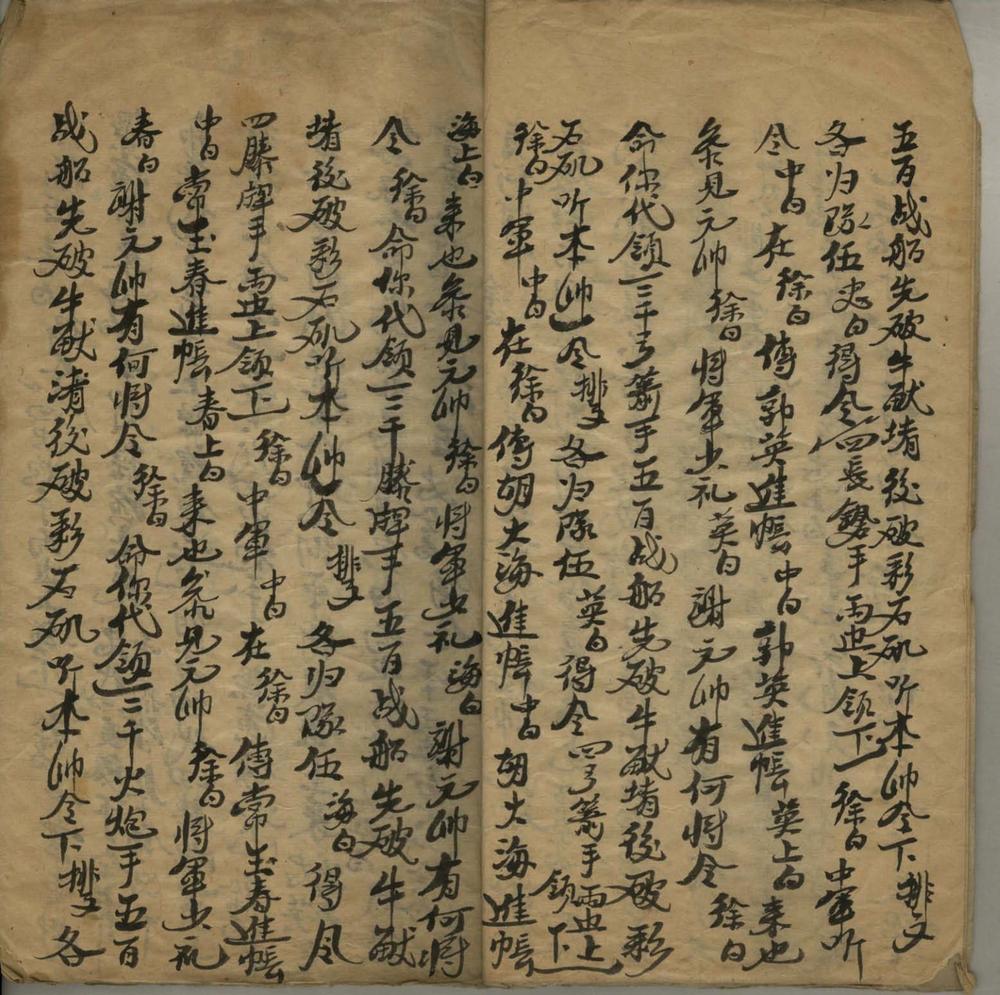 五百战船先破牛猷堵後破彩石矶听本帅令下排又
各归隊伍忠白得令四長鎗手両边上領下徐白中軍听
令中白在徐白傳郭英進帳中白郭英進帳英上白来也
叅見元帅徐白将軍少礼英白謝元帅有何将令徐白
命你代領三千弓箭手五百战船先破牛猷堵後破彩
石矶听本帅令排又各归隊伍英白得令四弓箭手両边上領下
徐白中軍中白在徐白傳胡大海進帳中白胡大海進帳
海上白来也叅見元帅徐白将軍少礼海白謝元帅有何将
令徐白命你代領三千滕牌手五百战船先破牛猷
堵後破彩石矶听本帅令排又各归隊伍海白得令
四滕牌手両边上領下徐白中軍中白在徐白傳常玉春進帳
中白常玉春進帳春上白来也叅見元帅徐白将軍少礼
春白謝元帅有何将令徐白命你代領三千火炮手五百
战船先破牛猷渚後破彩石矶听本帅令下排又各